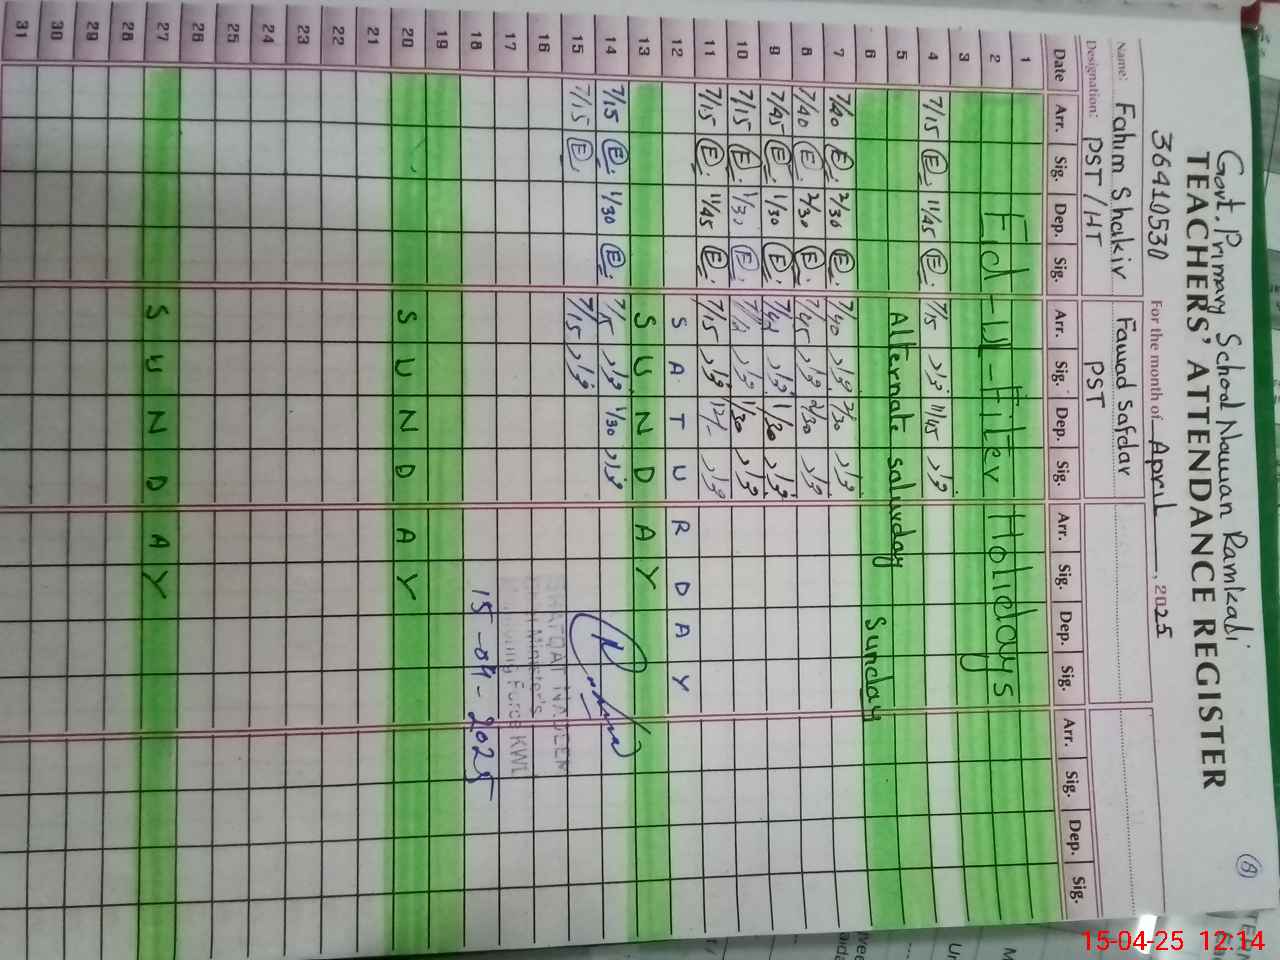 Govt. Primary School Nawan Ramkali
(8)
TEACHERS' ATTENDANCE REGISTER
36410530 For the month of April, 2025
Name: Fahim Shakir Fawad Safdar
Designation: PST/HT PST
Date Arr. Sig. Dep. Sig. Arr. Sig. Dep. Sig. Arr. Sig. Dep. Sig. Arr. Sig. Dep. Sig.
1
2 Eid-ul-Fiter Holidays
3
4 7/15 E 11/45 E 7/15 11/45
5 Alternate saturday
6 Sunday
7 7/40 E 2/30 E 7/40 2/30
8 7/40 E 2/30 E 7/45 2/30
9 7/45 E 1/30 E 1/30
10 7/15 E 1/30 E 1/30
11 7/15 E 11/45 E 7/15 12/-
12 SATURDAY
13 SUNDAY
14 7/15 E 1/30 E 7/15 1/30
15 7/15 E 7/15
16
17
18 15-04-2025
19
20 SUNDAY
21
22
23
24
25
26
27 SUNDAY
28
29
30
31
15-04-25 12:14